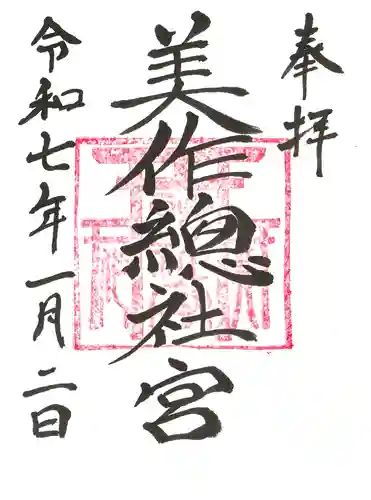 奉拝
美作總社宮
令和七年一月二日